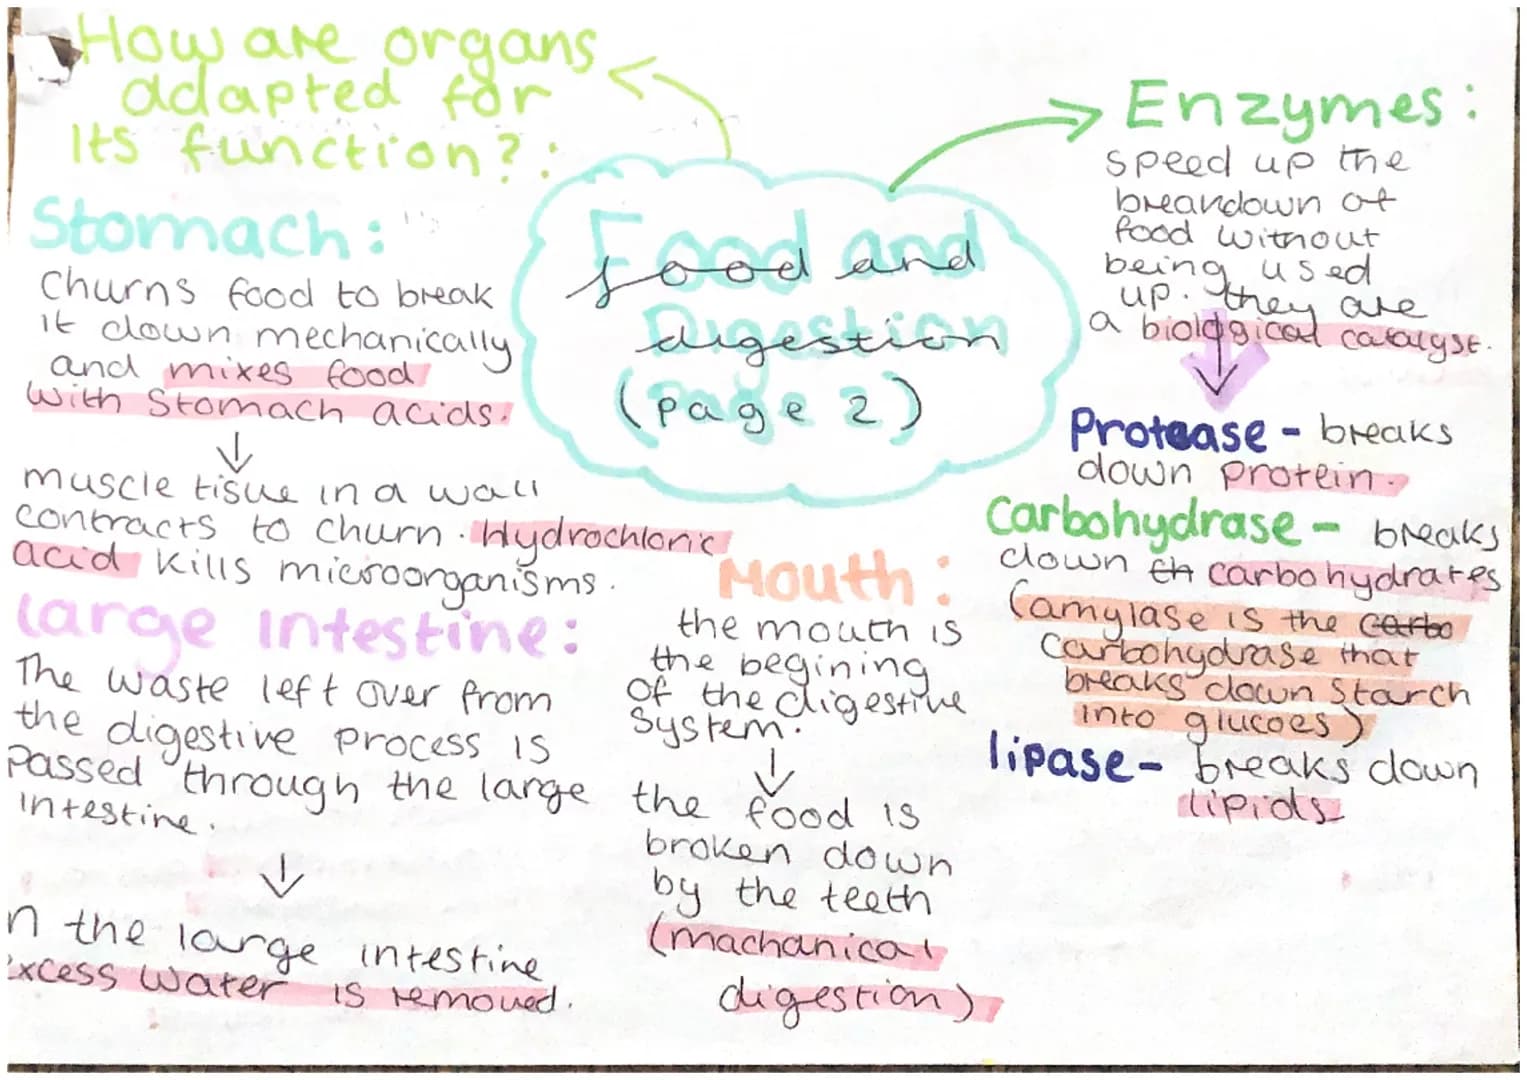 How are organs
adapted for
Its function?:
Stomach:
Churns food to break
it down mechanically
and mixes food
with Stomach acids.
muscle tisue in a wall
contracts to churn. Hydrochloric
acid kills microorganisms.
large Intestine:
The waste left over from
the digestive process is
Passed through the large
intestine.
n the large intestine
xcess water is removed.
Food and
Digestion
(page 2)
Mouth:
the mouth is
the begining
of the digestive
System.
the food is
broken down
by the teeth
(machanical
digestion)
Enzymes:
speed up the
breakdown of
food without
being used
up. they are
a biological catalyst.
Protease - breaks
down protein.
Carbohydrase - breaks
down th carbohydrates
(amylase is the carbo
Carbohydrase that
breaks down Starch
into glucoes)
lipase - breaks down
lipids